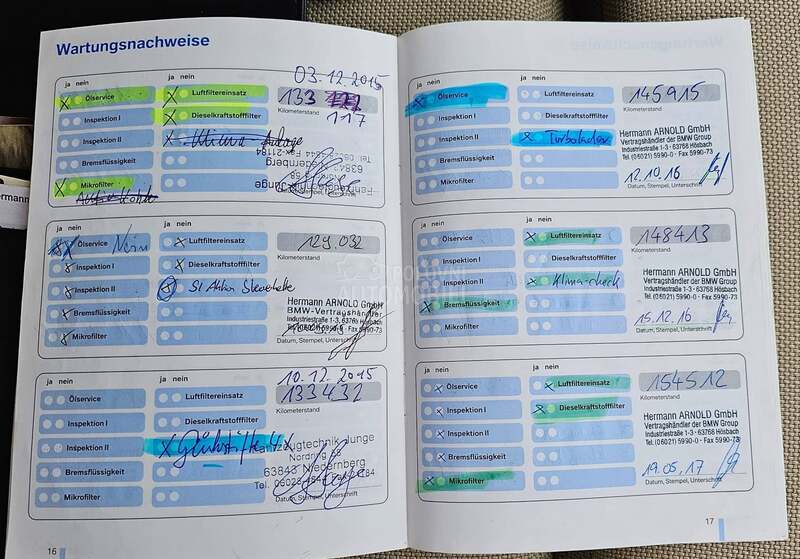 Wartungsnachweise
ja nein
ja nein
03.12.2015
Ölservice
Luftfiltereinsatz
133 117
Kilometerstand
Inspektion I
Dieselkraftstofffilter
Inspektion II
Klima Anlage
Bremsflüssigkeit
Mikrofilter
ja nein
ja nein
Ölservice
Nein
Luftfiltereinsatz
129.032
Kilometerstand
Inspektion I
Dieselkraftstofffilter
Inspektion II
Bremsflüssigkeit
Mikrofilter
Hermann ARNOLD GmbH
BMW-Vertragshändler
Industriestraße 1-3, 63768 Hösbach
Datum, Stempel, Unterschrift
ja nein
ja nein
10.12.2015
Ölservice
Luftfiltereinsatz
133432
Kilometerstand
Inspektion I
Dieselkraftstofffilter
Inspektion II
Glühstifte 4 x
Fahrzeugtechnik Junge
Nordring 68
Bremsflüssigkeit
63843 Niedernberg
Mikrofilter
Datum, Stempel, Unterschrift
16
ja nein
ja nein
Ölservice
Luftfiltereinsatz
145915
Kilometerstand
Inspektion I
Dieselkraftstofffilter
Inspektion II
Turbolader
Hermann ARNOLD GmbH
Vertragshändler der BMW Group
Industriestraße 1-3 · 63768 Hösbach
Tel. (06021) 5990-0 · Fax 5990-73
Bremsflüssigkeit
Mikrofilter
12.10.16
Datum, Stempel, Unterschrift
ja nein
ja nein
Ölservice
Luftfiltereinsatz
148413
Kilometerstand
Inspektion I
Dieselkraftstofffilter
Inspektion II
Klima-check
Hermann ARNOLD GmbH
Vertragshändler der BMW Group
Industriestraße 1-3 · 63768 Hösbach
Tel. (06021) 5990-0 · Fax 5990-73
Bremsflüssigkeit
Mikrofilter
15.12.16
Datum, Stempel, Unterschrift
ja nein
ja nein
Ölservice
Luftfiltereinsatz
154512
Kilometerstand
Inspektion I
Dieselkraftstofffilter
Inspektion II
Hermann ARNOLD GmbH
Vertragshändler der BMW Group
Industriestraße 1-3 · 63768 Hösbach
Tel. (06021) 5990-0 · Fax 5990-73
Bremsflüssigkeit
Mikrofilter
19.05.17
Datum, Stempel, Unterschrift
17